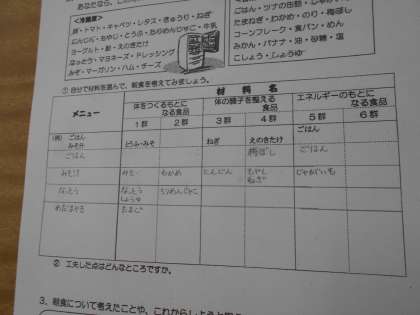 ＜冷蔵庫＞
卵・トマト・キャベツ・レタス・きゅうり・ねぎ
にんじん・もやし・とうふ・ちりめんじゃこ・牛乳
ヨーグルト・梨・えのきたけ
なっとう・マヨネーズ・ドレッシング
みそ・マーガリン・ハム・チーズ
ごはん・ツナの缶詰・じゃ
たまねぎ・わかめ・のり・梅ぼし
コーンフレーク・食パン・めん
みかん・バナナ・油・砂糖・塩
こしょう・しょうゆ
① 自分で材料を選んで、朝食を考えてみましょう。
材 料 名
メニュー
体をつくるもとになる食品
体の調子を整える食品
エネルギーのもとになる食品
1群 2群 3群 4群 5群 6群
(例) ごはん ごはん
みそ汁 とうふ・みそ ねぎ えのきたけ
ごはん 梅ぼし ごはん
みそ汁 みそ わかめ にんじん もやし ねぎ じゃがいも
なっとう なっとう しょうゆ ちりめんじゃこ
めだまやき たまご
② 工夫した点はどんなところですか。
3、朝食について考えたことや、これからしようと